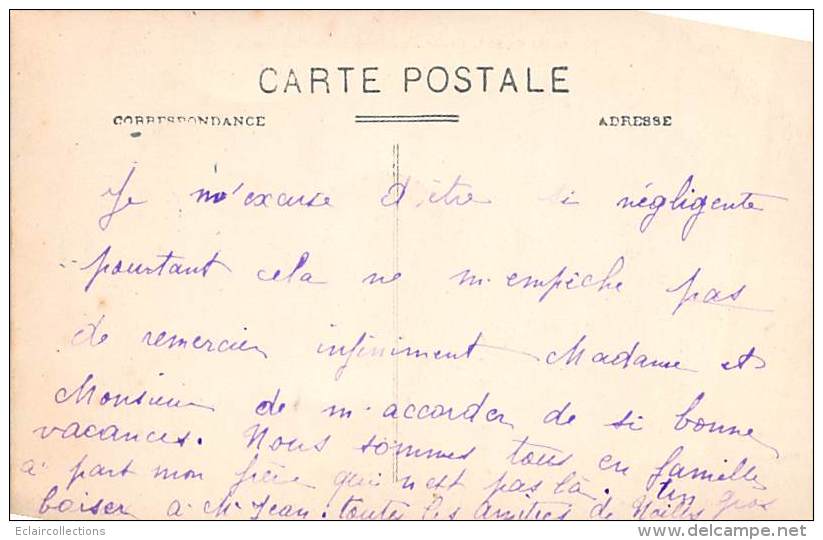 CARTE POSTALE
CORRESPONDANCE
ADRESSE
Je m'excuse d'être si négligente
pourtant cela ne m'empêche pas
de remercier infiniment Madame et
Monsieur de m'accorder de si bonne
vacances. Nous sommes tous en famille
à part mon frère qui n'est pas là. Un gros
baiser à Mr Jean. toutes les amitiés de
Eclaircollections
delcampe.net